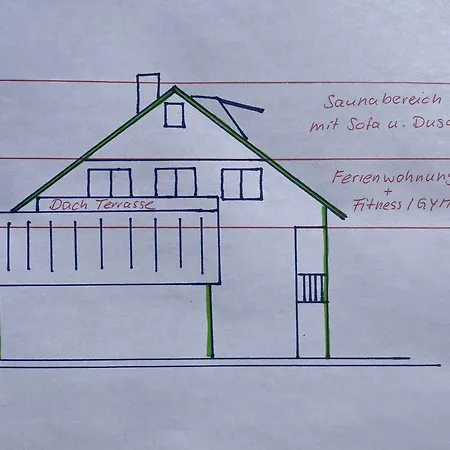 Saunabereich
mit Sofa u. Dusc
Ferienwohnung
+
Fitness / GYM
Dach Terrasse